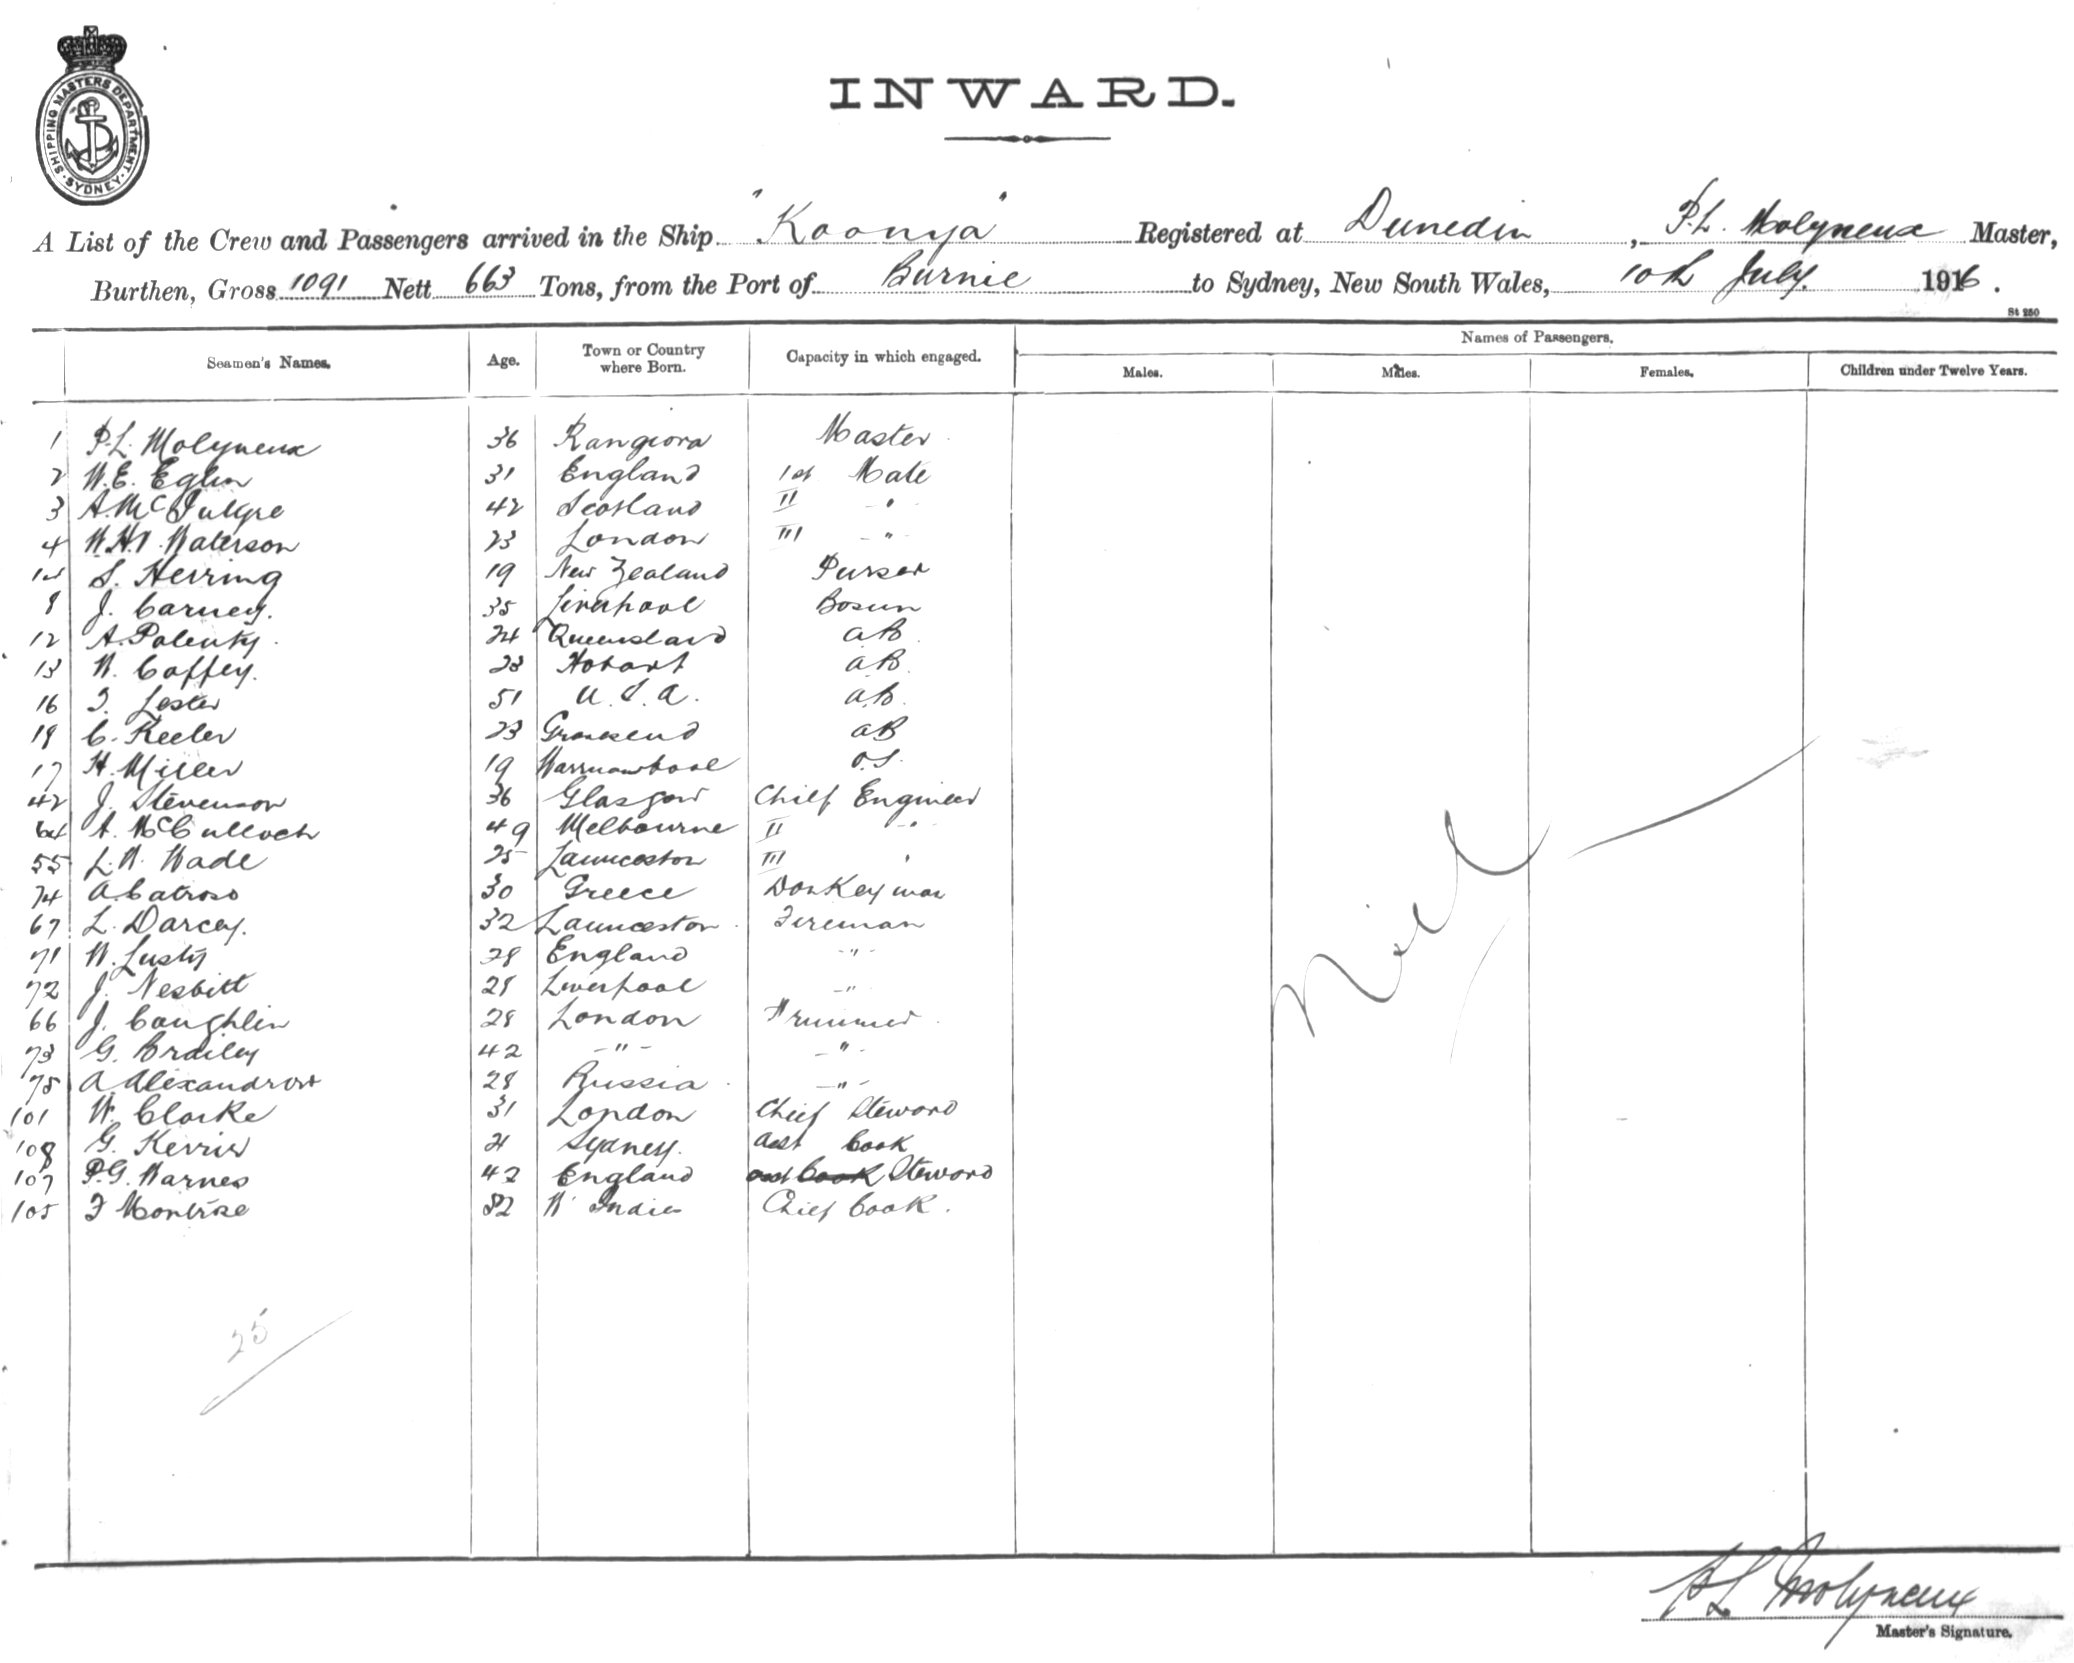 SHIPPING MASTERS DEPARTMENT. SYDNEY.
INWARD.
A List of the Crew and Passengers arrived in the Ship "Koonya" Registered at Dunedin, P.L. Molyneux Master,
Burthen, Gross 1091 Nett 663 Tons, from the Port of Burnie to Sydney, New South Wales, 10th July. 1916.
St 250
Seamen's Names. Age. Town or Country where Born. Capacity in which engaged. Names of Passengers.
Males. Males. Females. Children under Twelve Years.
1 P.L. Molyneux 36 Rangiora Master
2 W.E. Eglin 31 England 1st Mate
3 A. McIntyre 42 Scotland II "
4 W.H. Waterson 23 London III "
14 S. Herring 19 New Zealand Purser
8 J. Carney. 35 Liverpool Bosun
12 A. Polenty. 24 Queensland AB
13 W. Caffey. 23 Hobart AB.
16 T. Lester 51 U.S.A. AB.
18 C. Keeler 23 Gravesend AB
17 H. Miller 19 Warrnambool O.S.
42 J. Stevenson 36 Glasgow Chief Engineer
A. McCulloch 49 Melbourne II "
55 L.W. Wade 25 Launceston III "
74 A. Catroso 30 Greece Donkeyman
67 L. Darcey. 32 Launceston Fireman
71 W. Lusty 28 England "
72 J. Nesbitt 28 Liverpool "
66 J. Coughlin 28 London Trimmer
73 G. Brailey 42 " "
75 A. Alexandrov 28 Russia "
101 W. Clarke 31 London Chief Steward
108 G. Kerrir 21 Sydney. Asst Cook
107 P.G. Warnes 42 England Cook Steward
105 F Montrose 32 W Indies Chief Cook.
Nil
25
P L Molyneux
Master's Signature.